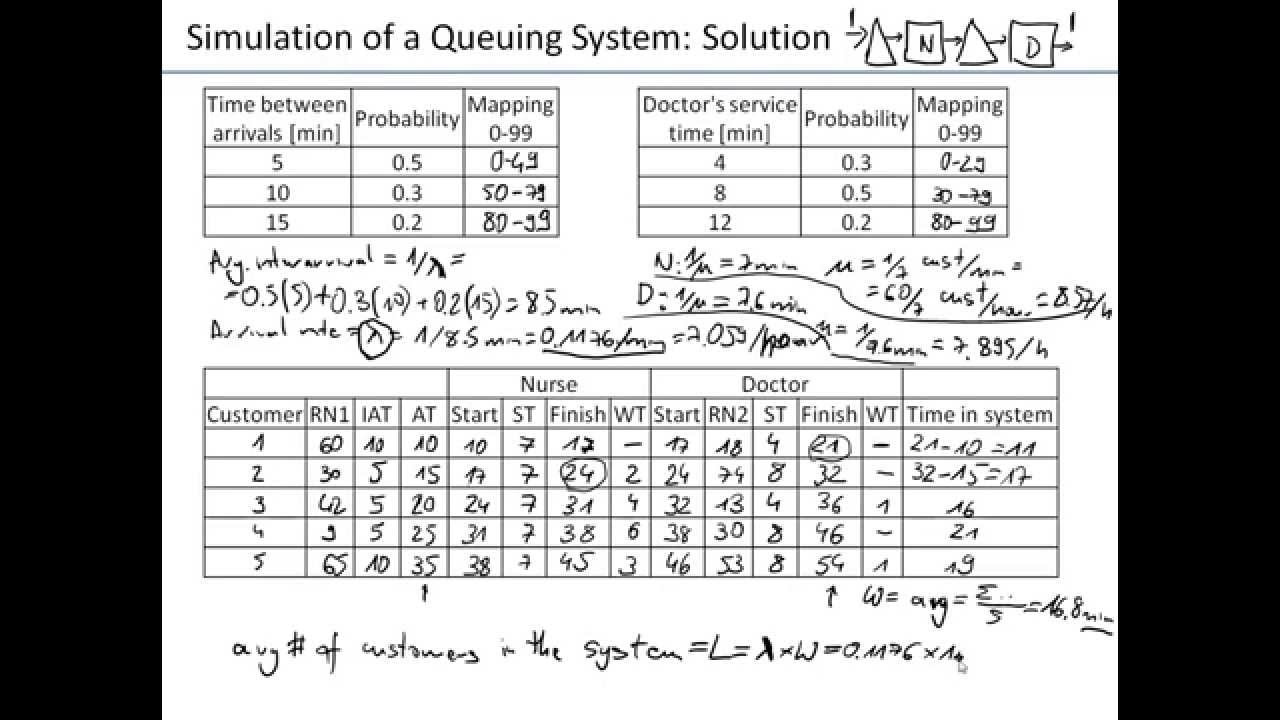 Simulation of a Queuing System: Solution 1 N D 1
Time between arrivals [min] Probability Mapping 0-99
5 0.5 0-49
10 0.3 50-79
15 0.2 80-99
Doctor's service time [min] Probability Mapping 0-99
4 0.3 0-29
8 0.5 30-79
12 0.2 80-99
Avg. interarrival = 1/λ =
= 0.5(5) + 0.3(10) + 0.2(15) = 8.5 min
Arrival rate = λ = 1/8.5 min = 0.1176/min = 7.059/hour
N: 1/μ = 7 min μ = 1/7 cust/min =
= 60/7 cust/hour = 8.57/h
D: 1/μ = 7.6 min
μ = 1/7.6 min = 7.895/h
Nurse Doctor
Customer RN1 IAT AT Start ST Finish WT Start RN2 ST Finish WT Time in system
1 60 10 10 10 7 17 – 17 18 4 21 – 21-10=11
2 30 5 15 17 7 24 2 24 74 8 32 – 32-15=17
3 42 5 20 24 7 31 4 32 13 4 36 1 16
4 9 5 25 31 7 38 6 38 30 8 46 – 21
5 65 10 35 38 7 45 3 46 53 8 54 1 19
↑ ↑ W = avg = Σ../5 = 16.8 min
avg # of customers in the system = L = λ × W = 0.1176 × 1